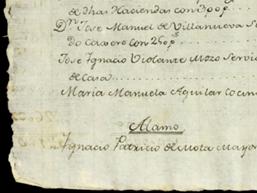 de dhas Haciendas con 300 p.
Dn. José Manuel de Villanueva S
do Casero con 250 p.
José Ignacio Violante Mozo Servi
de Casa
Maria Manuela Aguilar Cocin
Alamo
Ignacio Patricio de Mota Mayor